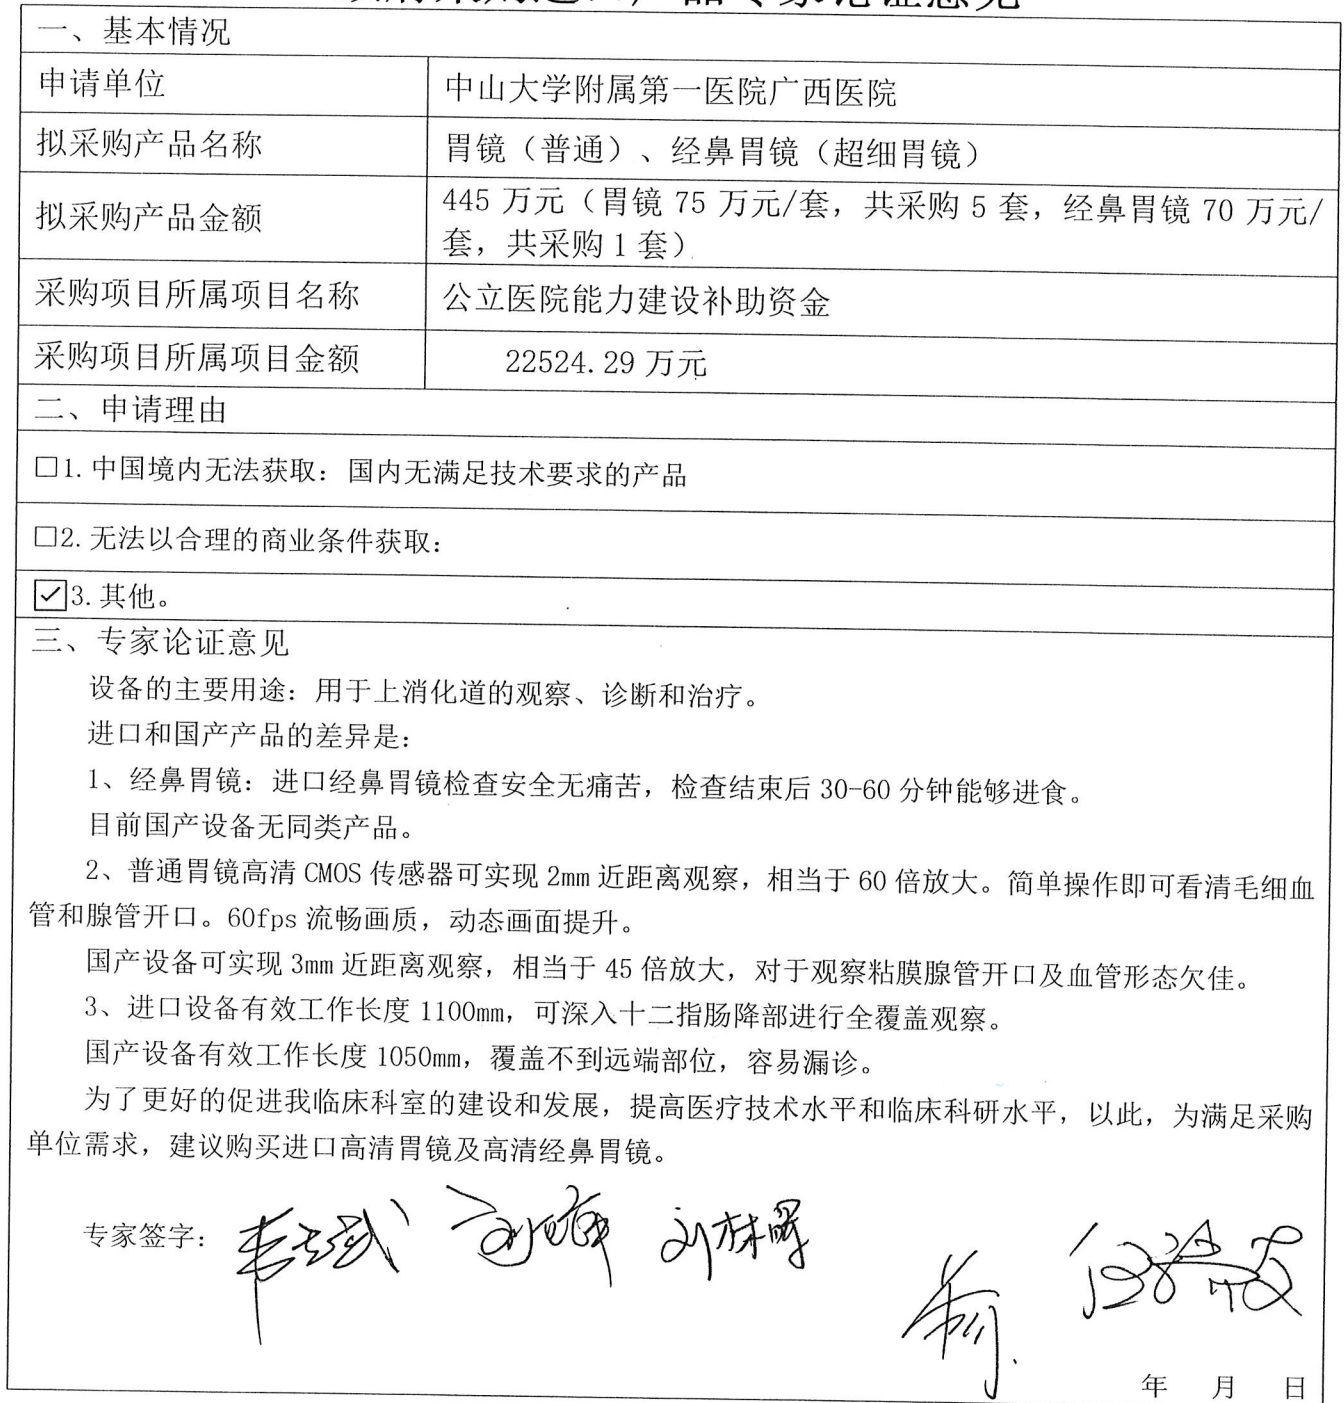 品专家论证意见
一、基本情况
申请单位
中山大学附属第一医院广西医院
拟采购产品名称
胃镜（普通）、经鼻胃镜（超细胃镜）
拟采购产品金额
445 万元（胃镜 75 万元/套，共采购 5 套，经鼻胃镜 70 万元/
套，共采购 1 套）
采购项目所属项目名称
公立医院能力建设补助资金
采购项目所属项目金额
22524.29 万元
二、申请理由
□1.中国境内无法获取：国内无满足技术要求的产品
□2.无法以合理的商业条件获取：
☑3.其他。
三、专家论证意见
设备的主要用途：用于上消化道的观察、诊断和治疗。
进口和国产产品的差异是：
1、经鼻胃镜：进口经鼻胃镜检查安全无痛苦，检查结束后 30-60 分钟能够进食。
目前国产设备无同类产品。
2、普通胃镜高清 CMOS 传感器可实现 2mm 近距离观察，相当于 60 倍放大。简单操作即可看清毛细血
管和腺管开口。60fps 流畅画质，动态画面提升。
国产设备可实现 3mm 近距离观察，相当于 45 倍放大，对于观察粘膜腺管开口及血管形态欠佳。
3、进口设备有效工作长度 1100mm，可深入十二指肠降部进行全覆盖观察。
国产设备有效工作长度 1050mm，覆盖不到远端部位，容易漏诊。
为了更好的促进我临床科室的建设和发展，提高医疗技术水平和临床科研水平，以此，为满足采购
单位需求，建议购买进口高清胃镜及高清经鼻胃镜。
专家签字：
年 月 日